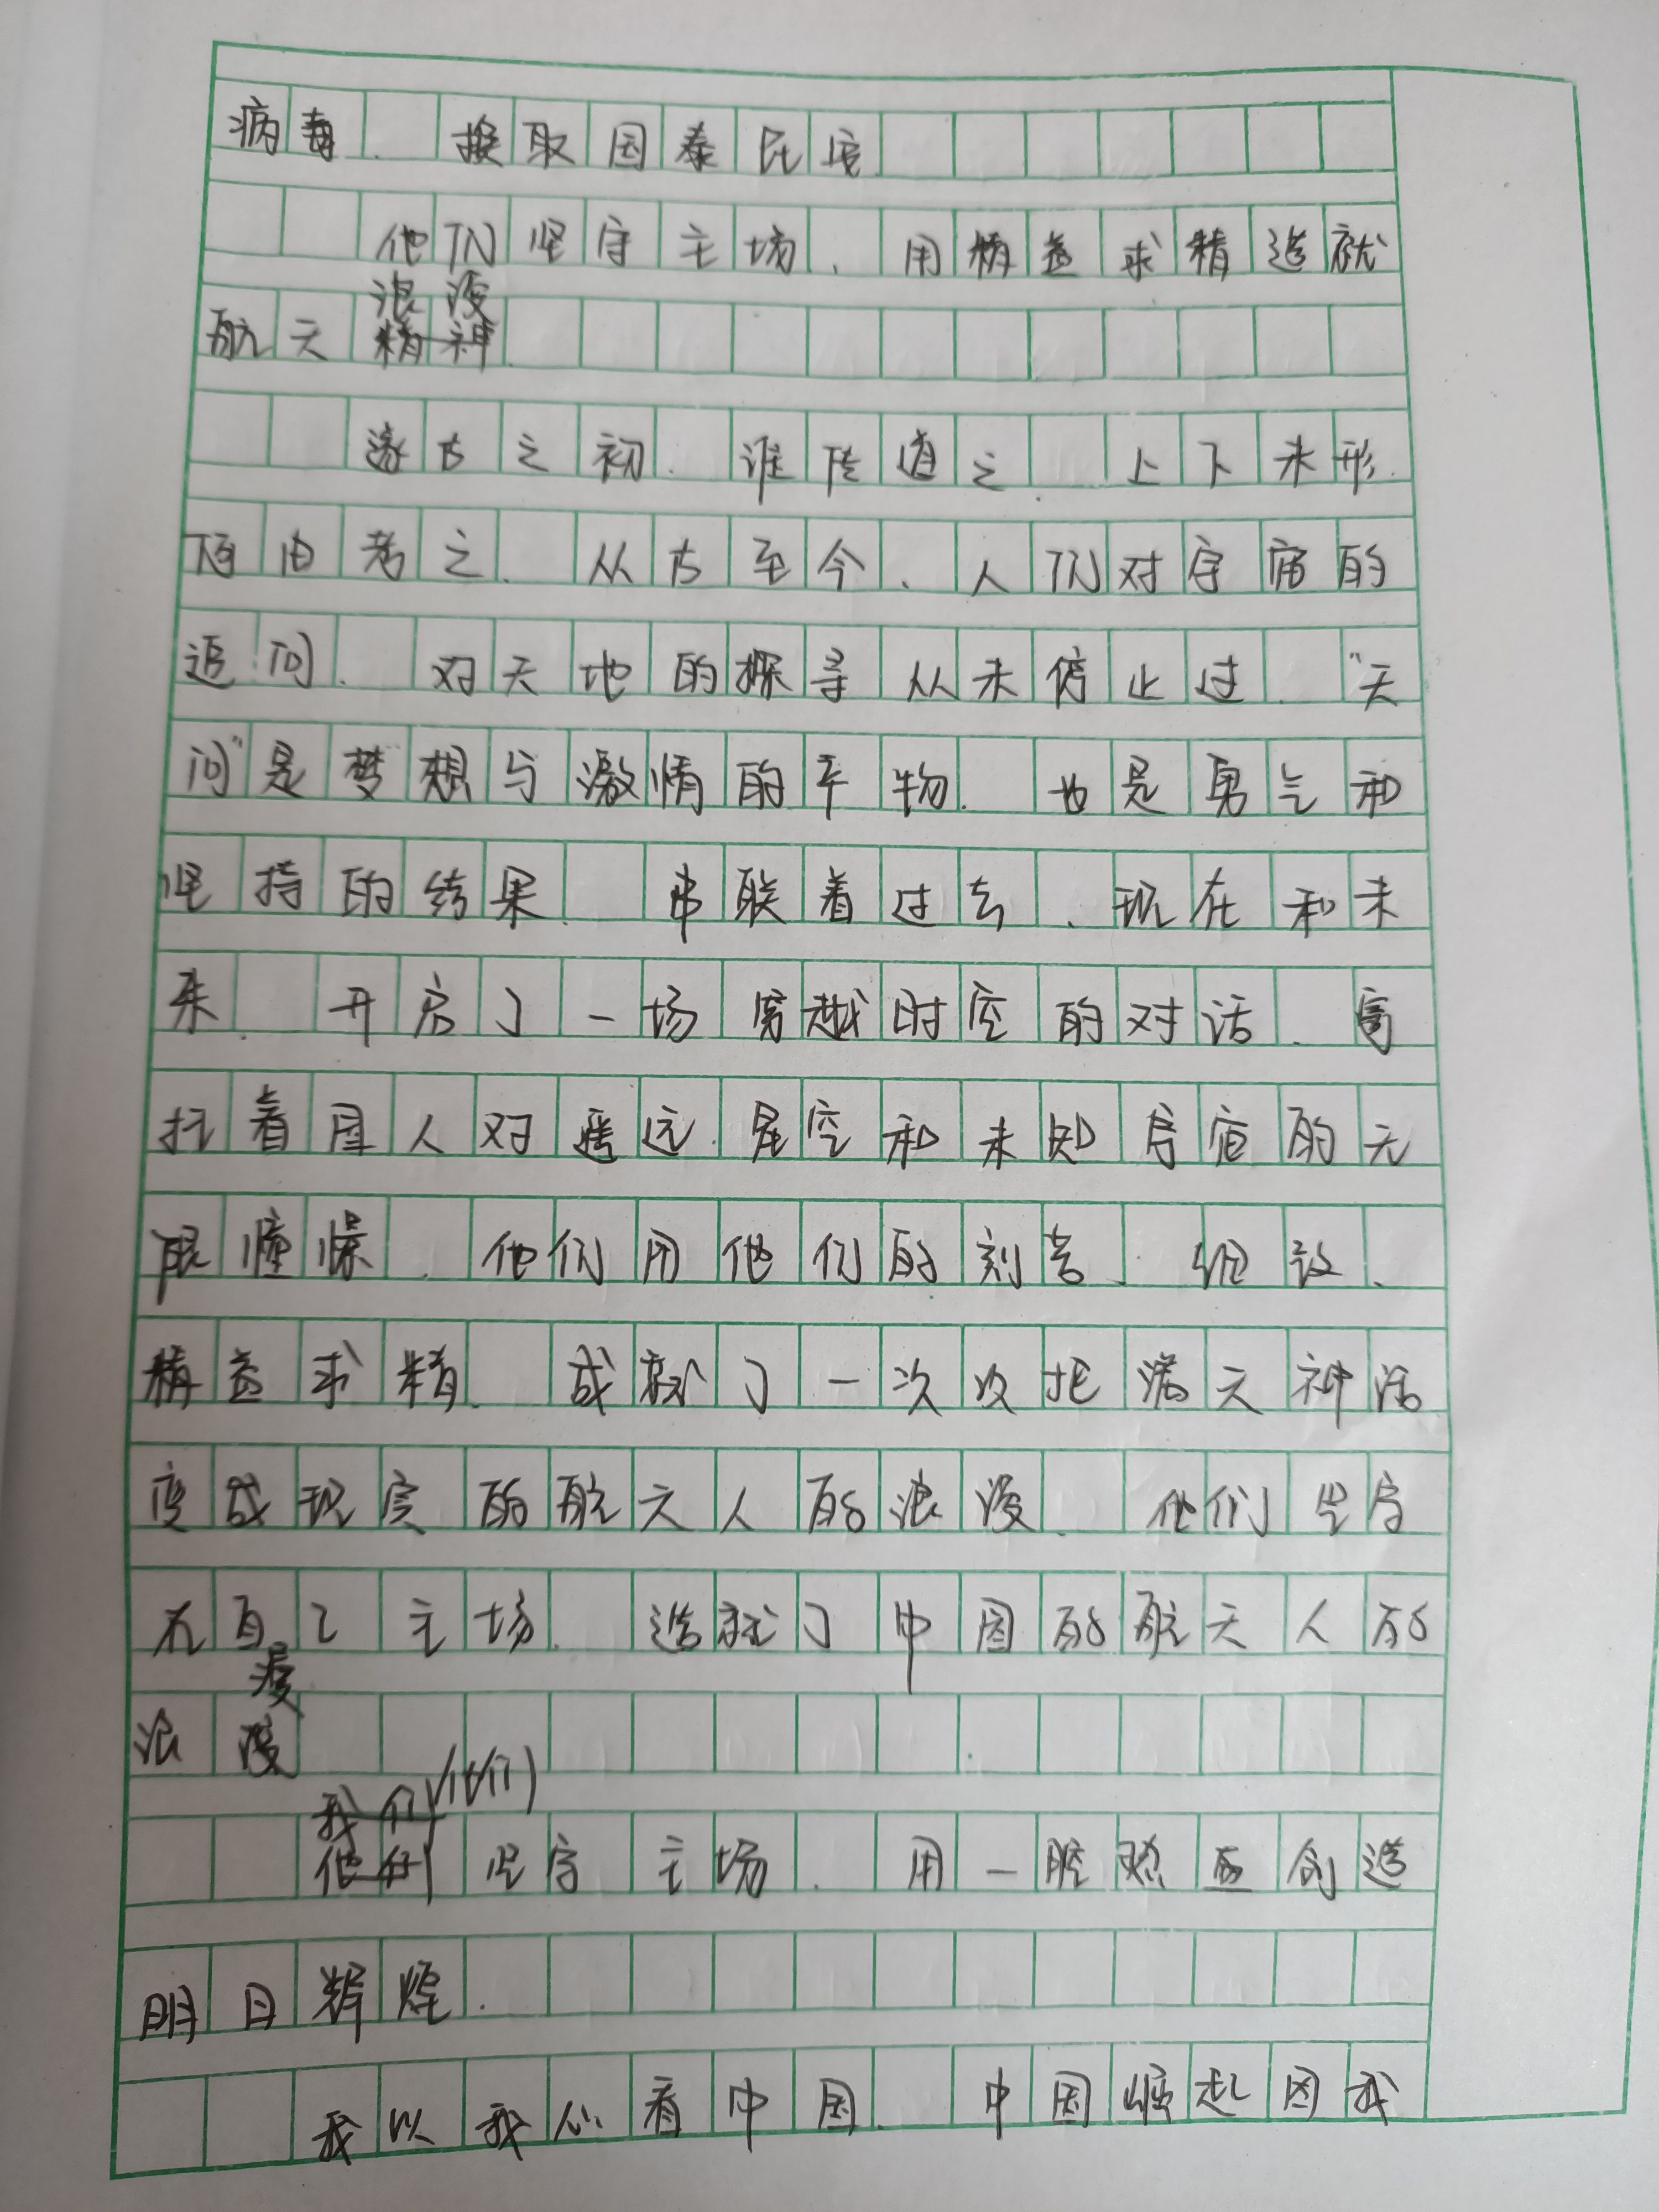 病毒,换取国泰民安.
他们坚守主场,用精益求精造就
浪漫
航天精神.
遂古之初,谁传道之.上下未形,
何由考之.从古至今,人们对宇宙的
追问,对天地的探寻从未停止过."天
问"是梦想与激情的产物,也是勇气和
坚持的结果,串联着过去、现在和未
来,开启了一场穿越时空的对话,寄
托着国人对遥远星空和未知宇宙的无
限憧憬.他们用他们的刻苦、细致、
精益求精,成就了一次次把满天神话
变成现实的航天人的浪漫.他们坚守
在自己主场,造就了中国的航天人的
漫
浪漫
我们(他们)
他们坚守主场,用一腔热血创造
明日辉煌.
我以我心看中国,中国崛起因我